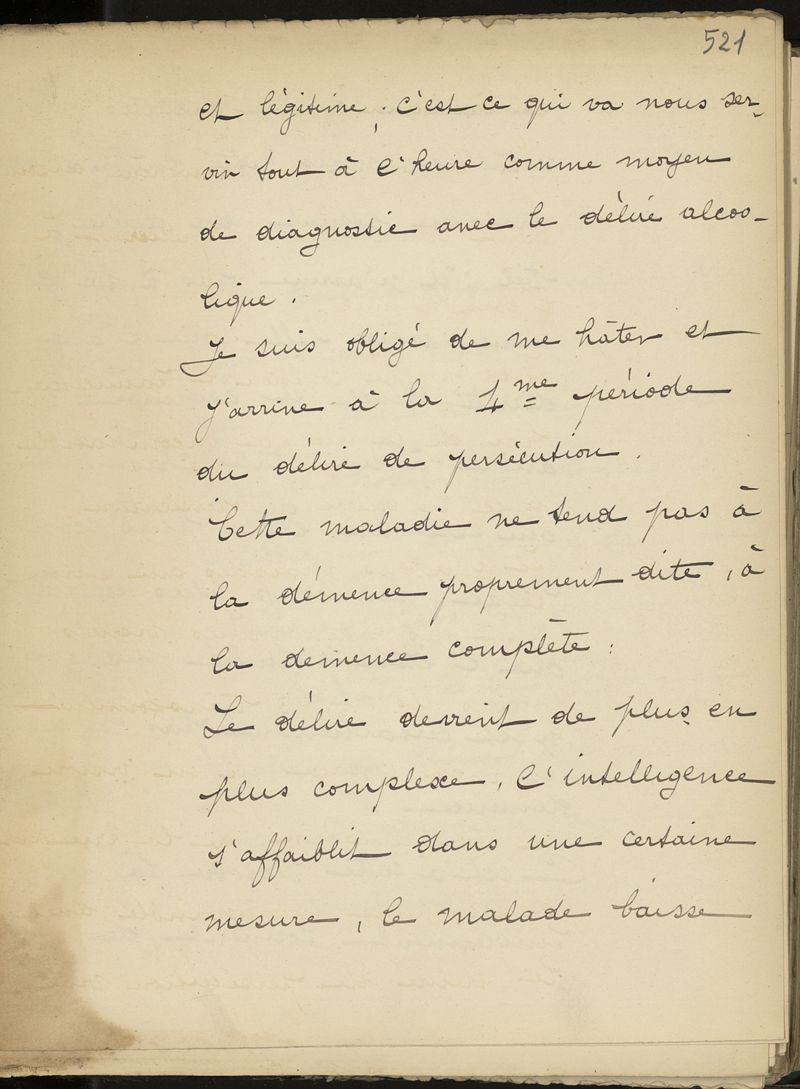 521
et légitime ; c'est ce qui va nous ser-
vir tout à l'heure comme moyen
de diagnostic avec le délire alcoo-
lique.
Je suis obligé de me hâter et
j'arrive à la 4me période
du délire de persécution.
Cette maladie ne tend pas à
la démence proprement dite, à
la demence complète :
Le délire devient de plus en
plus complexe, l'intelligence
s'affaiblit dans une certaine
mesure, le malade baisse